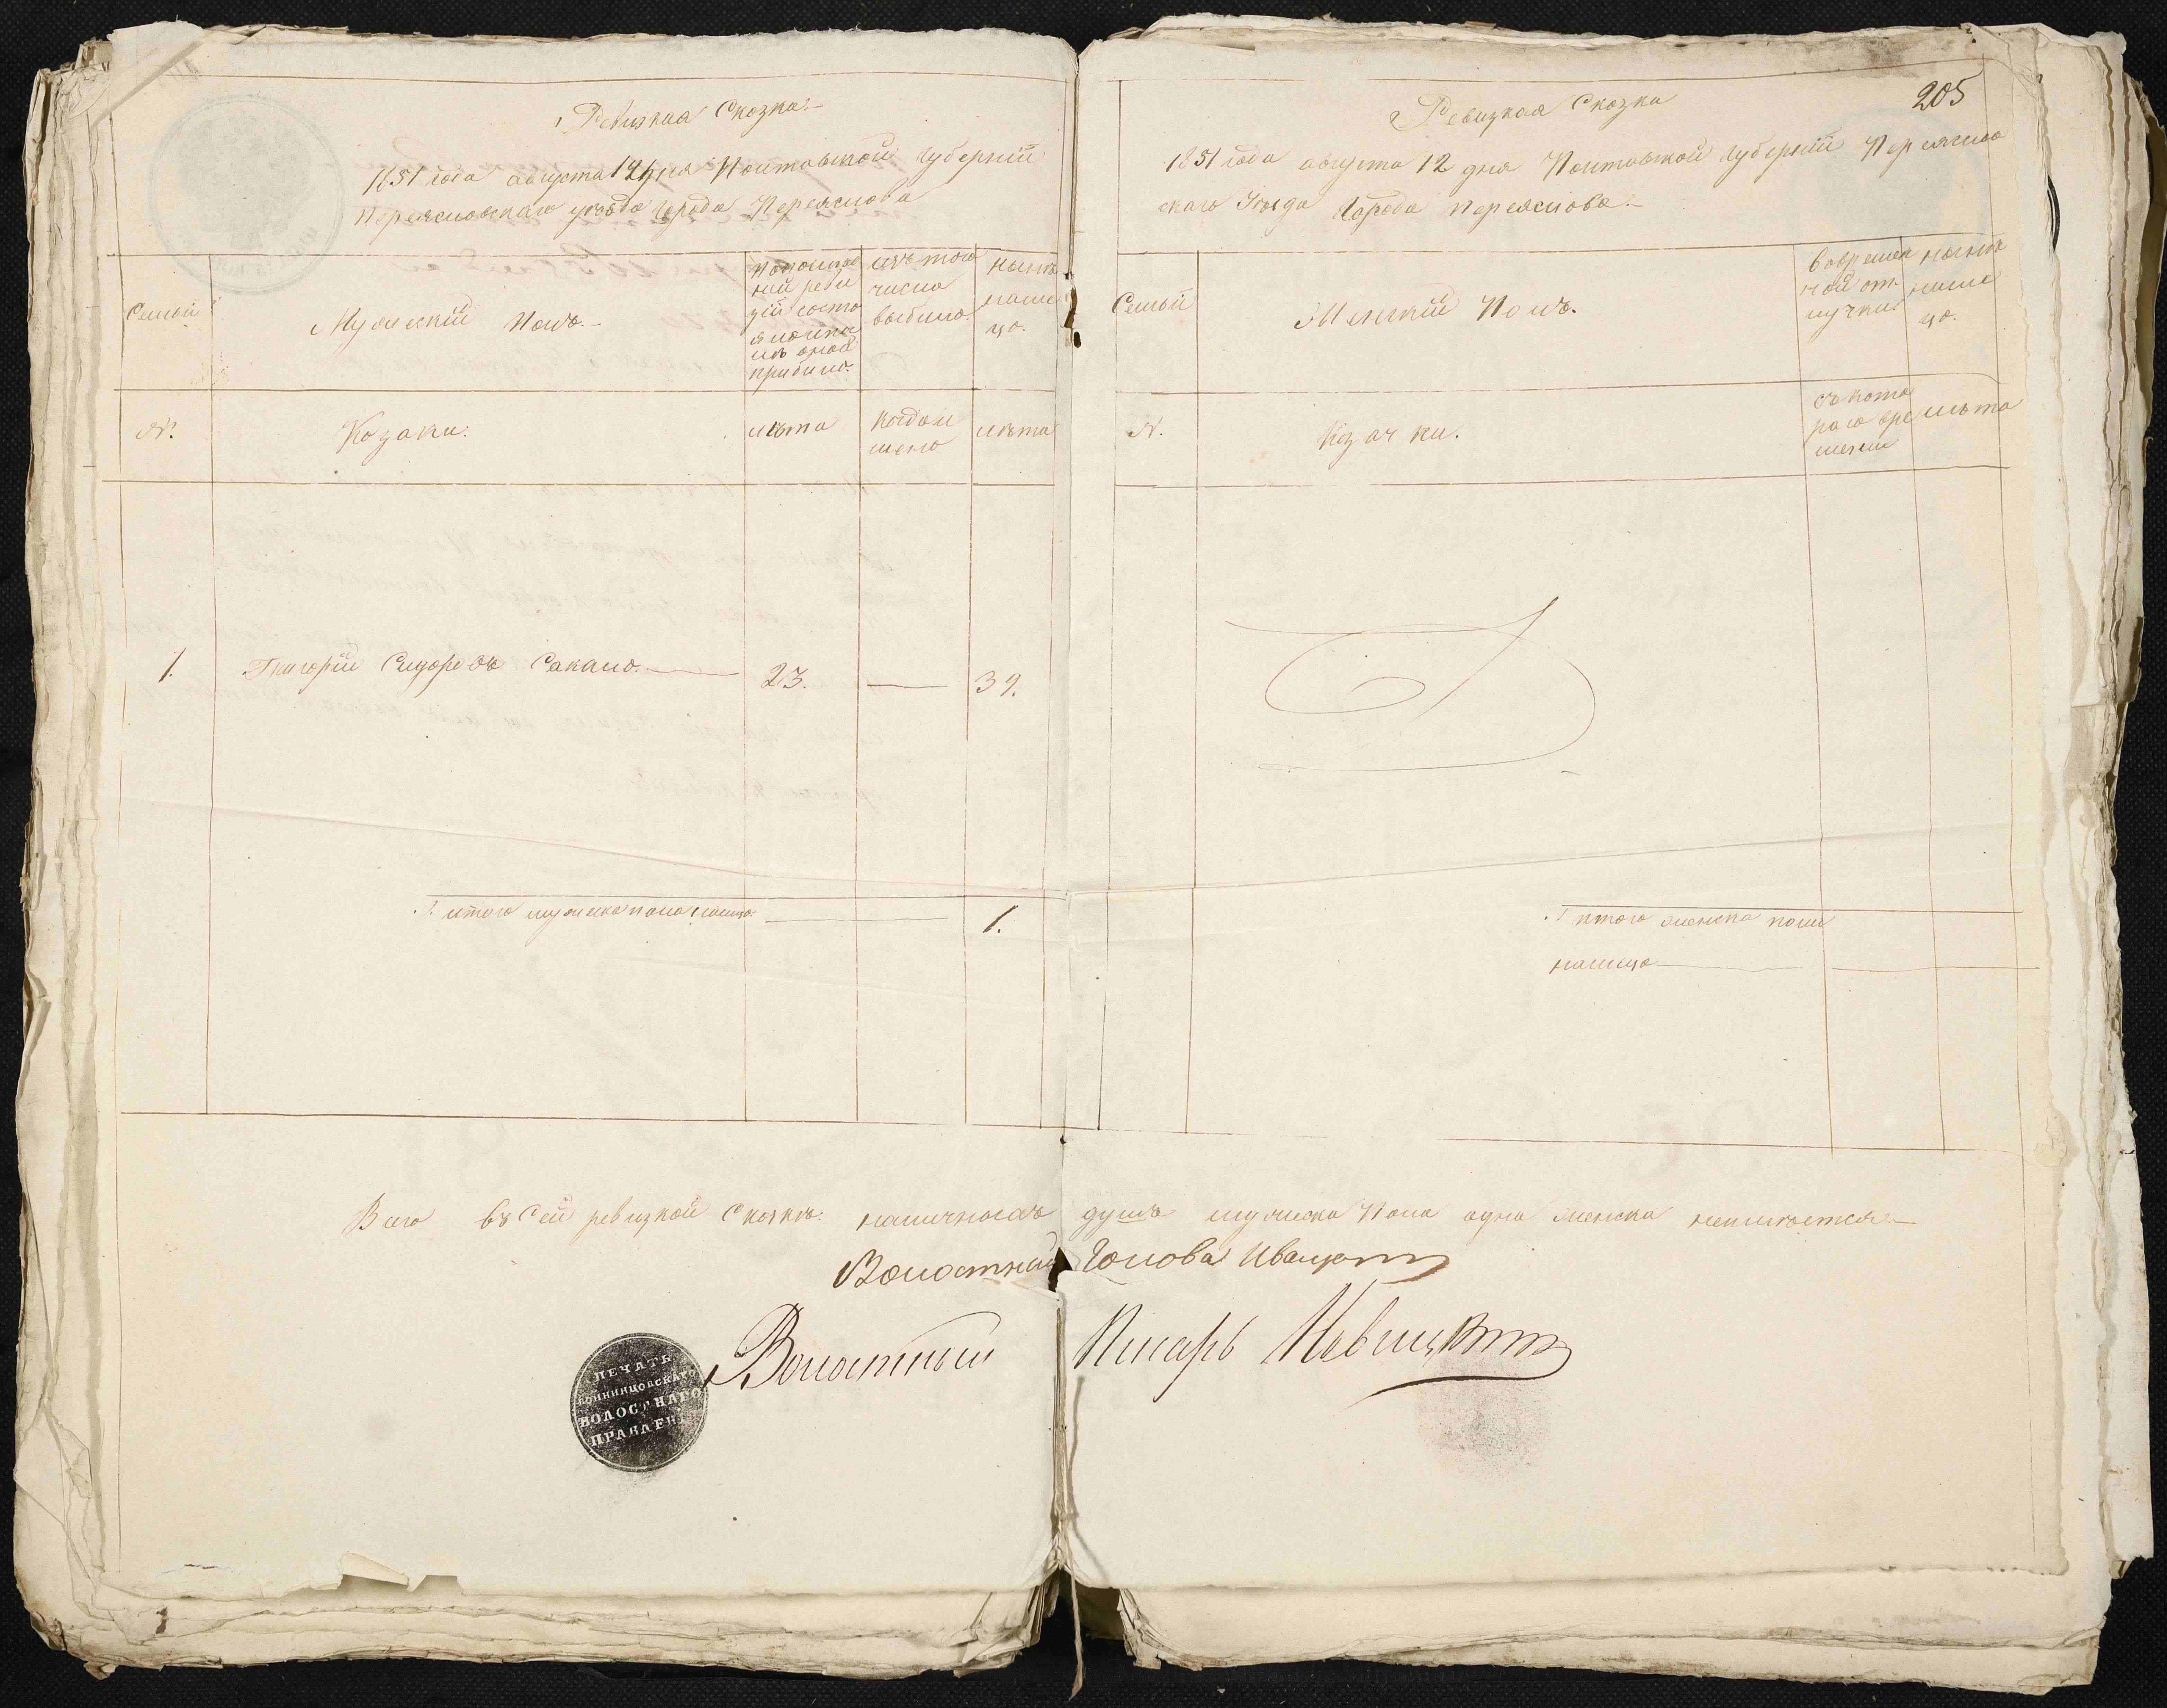 Ревизкая Сказка
1851 года августа 12 дня Полтавской губернiи
Переяславскаго уезда города Переяслова
Семьи
Мужескiй Полъ.
По последней ревизiи состояло и после оной прибыло.
изъ того числа выбыло.
ныне налицо.
№.
Козаки.
лѣта
когда именно
лѣта
1.
Григорiй Сидоровъ Сакало.
23.
39.
И итого мужеска пола налицо.
1.
205
Ревизкая Сказка
1851 года августа 12 дня Полтавской губернiи Переяслов
скаго Уезда Города Переяслова.
Семьи
Женскiй Полъ.
во времен
ной от
лучки.
ныне
нали
цо.
№.
Козачки.
съ кото
раго вре
мени
лѣта
И итого женска пола
налицо
Всего въ сей ревизкой сказкѣ: наличныхъ душъ мужеска пола одна женска неимѣется
Волостный Голова
Волостный Писарь
ПЕЧАТЬ
ВОЛОСТНАГО
ПРАВЛЕН